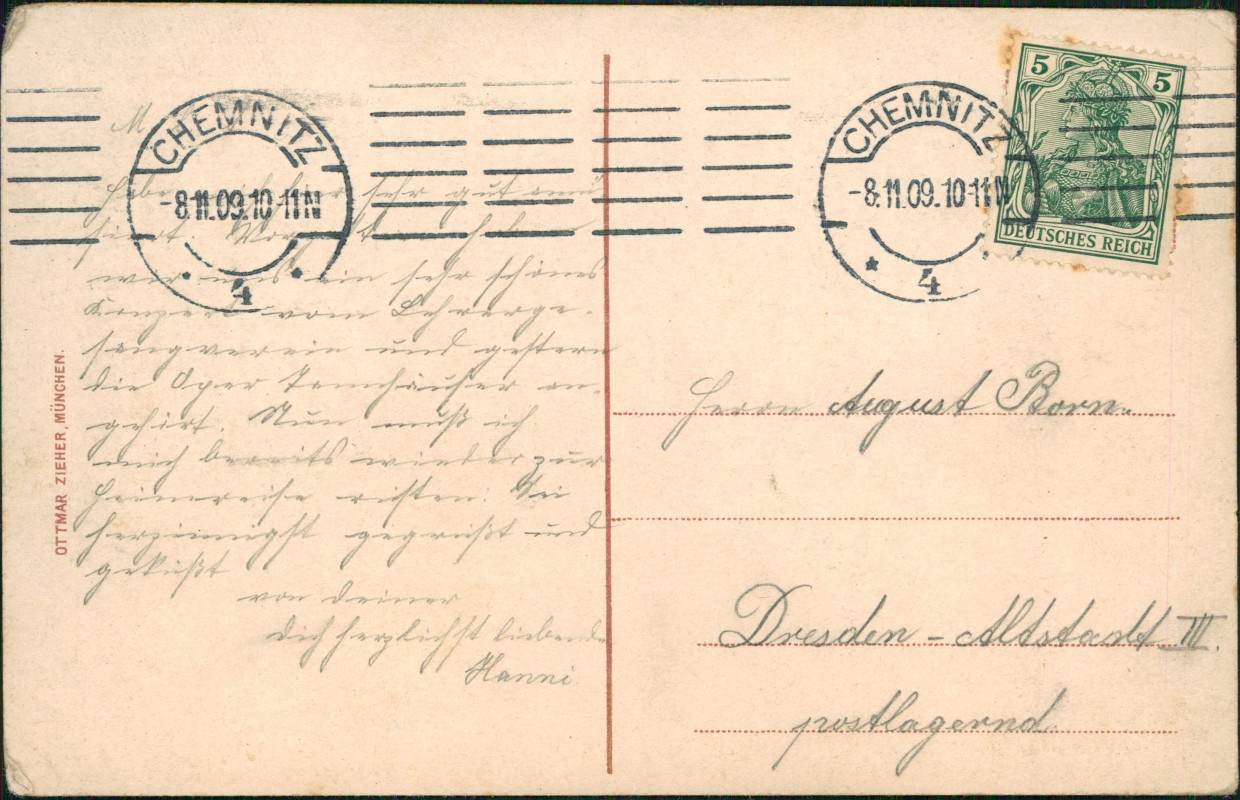 CHEMNITZ
-8.11.09.10-11N
* 4 *
CHEMNITZ
-8.11.09.10-11N
* 4
5 5
DEUTSCHES REICH
M
Habe sehr gut amü-
siert.
wir uns ein sehr schönes
Konzert vom Lehrerge-
sangverein und gestern
die Oper Tannhäuser an-
gehört. Nun muß ich
mich bereits wieder zur
Heimreise rüsten. Sei
herzinnigst gegrüßt und
geküßt
von Deiner
Dich herzlichst liebenden
Hanni
OTTMAR ZIEHER, MÜNCHEN.
Herrn August Born.
Dresden - Altstadt III.
postlagernd.